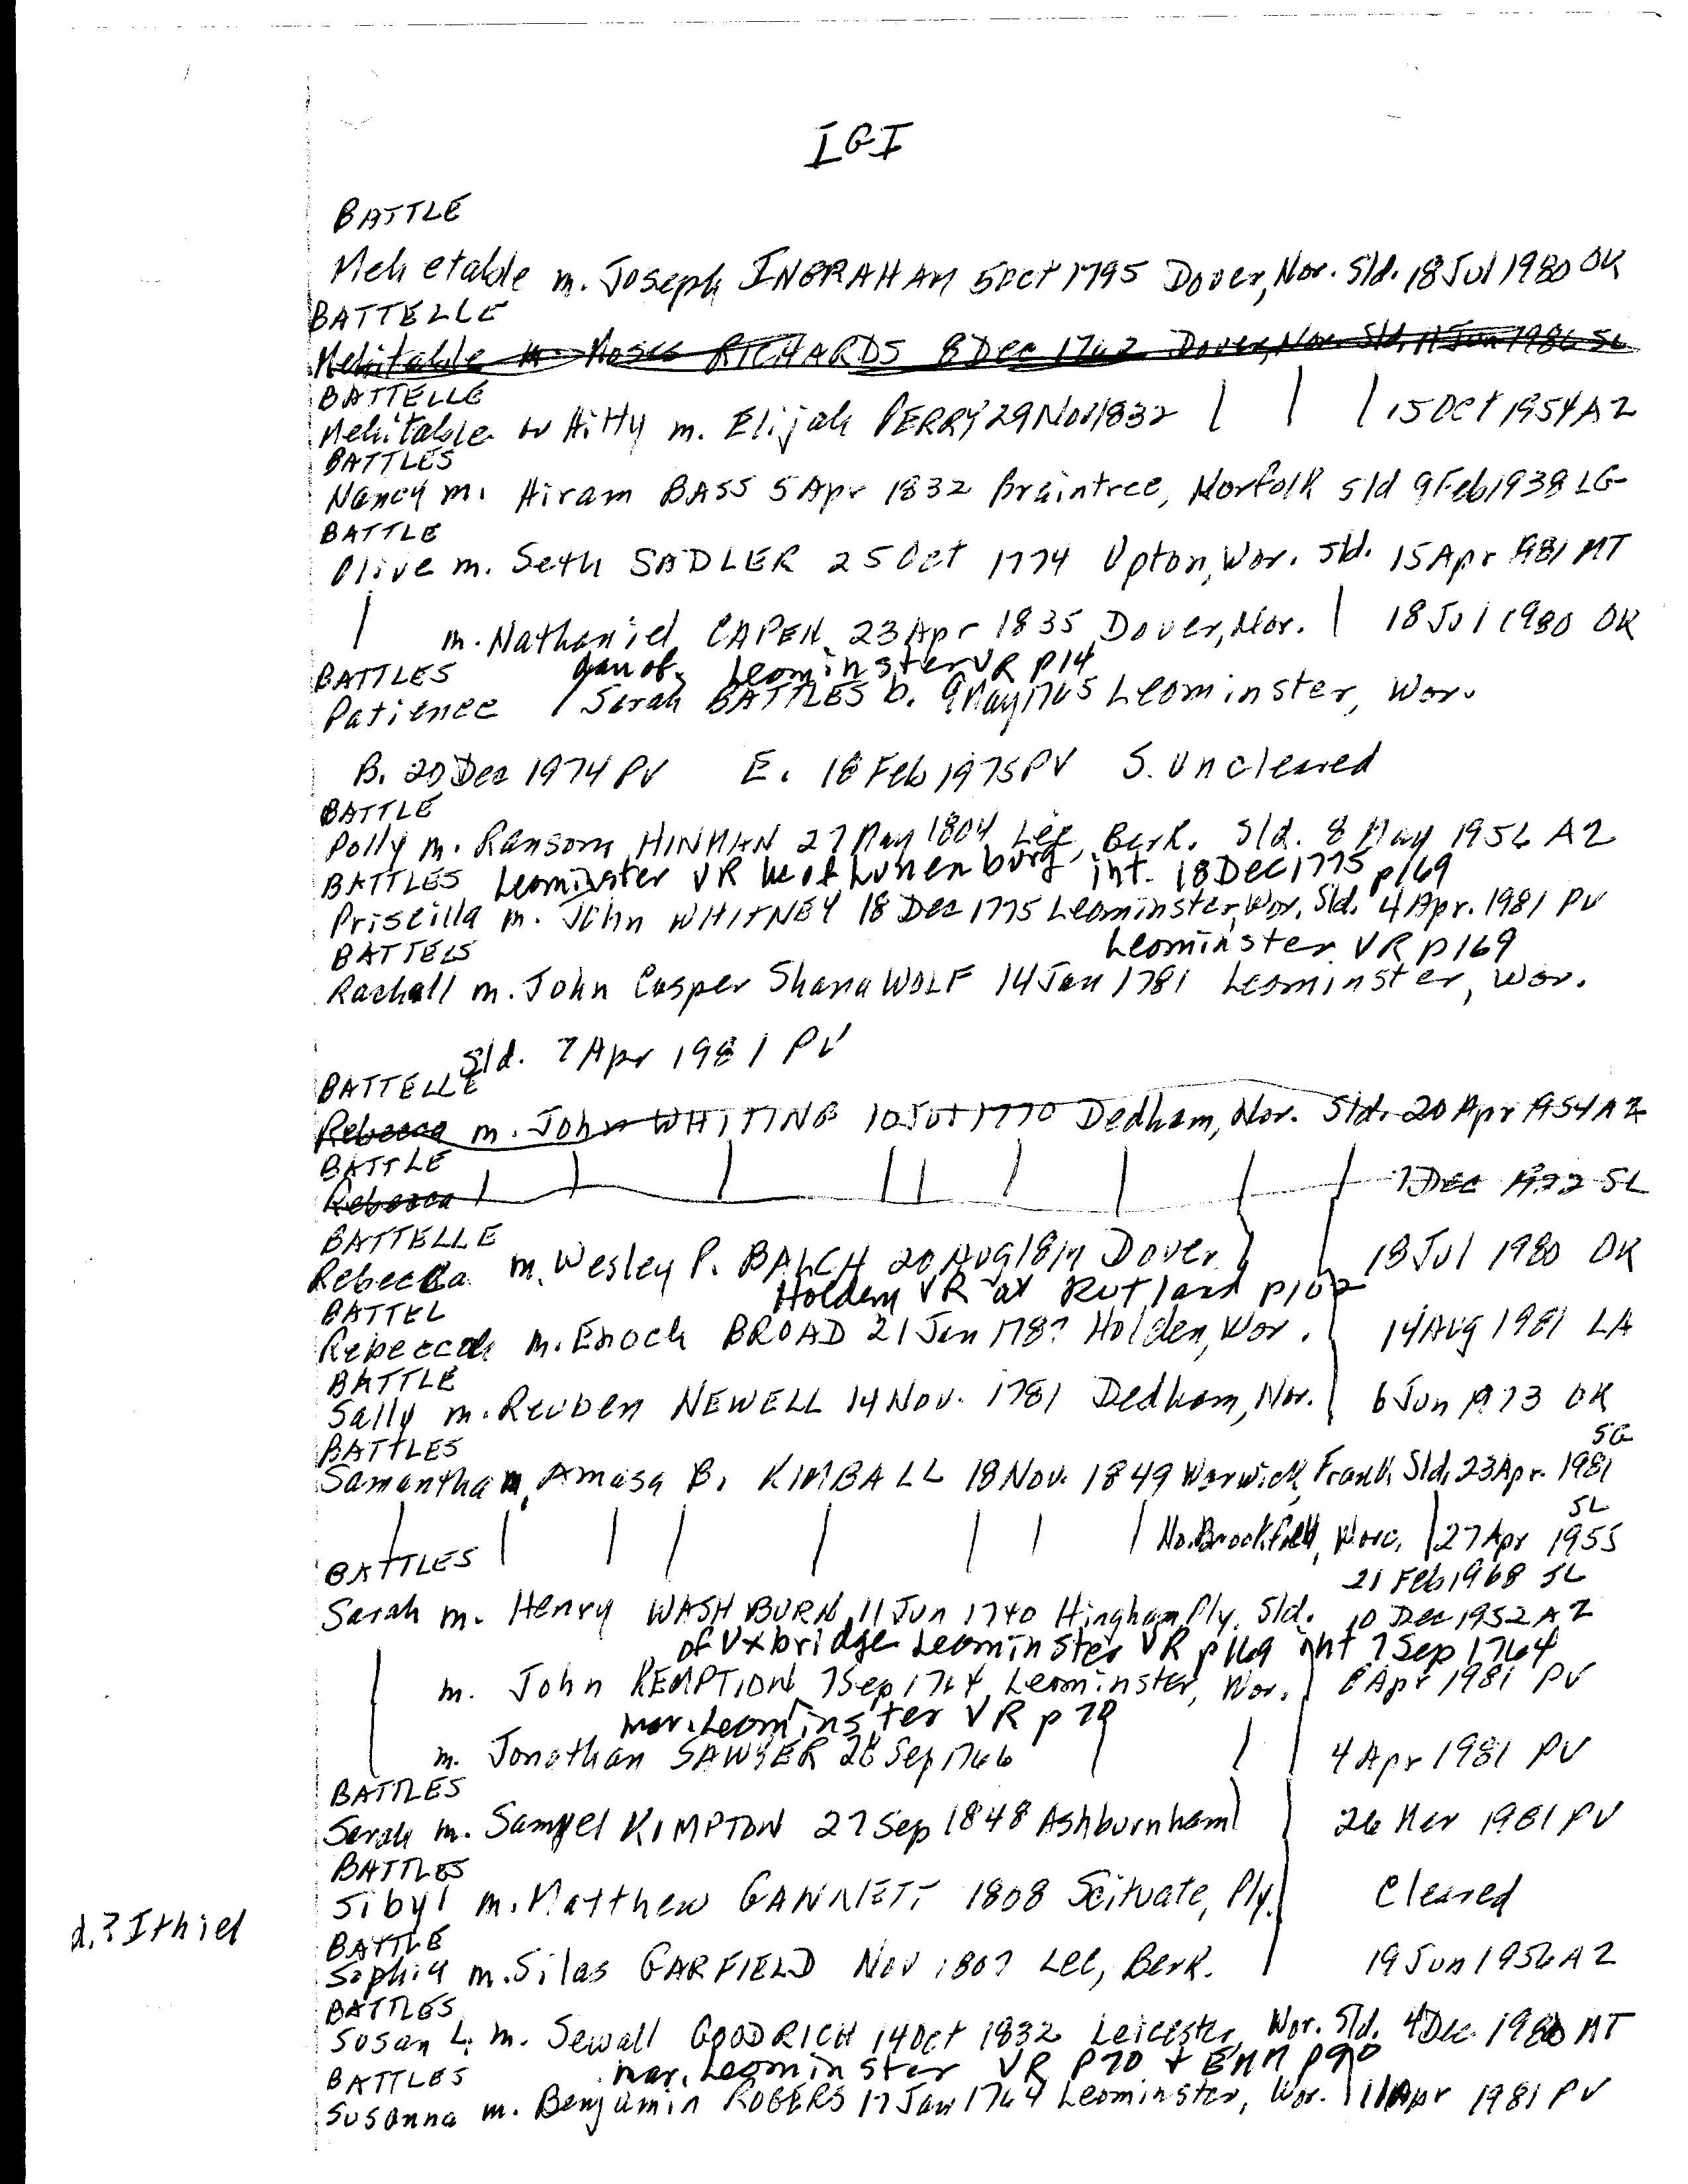 IGI
BATTLE
Mehetable m. Joseph INGRAHAM 5 Oct 1795 Dover, Nor. Sld. 18 Jul 1980 OK
BATTELLE
Mehitable m. Moses RICHARDS 8 Dec 1762 Dover, Nor. Sld. 11 Jun 1986 SL
BATTELLE
Mehitable or Hitty m. Elijah PERRY 29 Nov 1832 | | | 15 Oct 1954 AZ
BATTLES
Nancy m. Hiram BASS 5 Apr 1832 Braintree, Norfolk sld 9 Feb 1938 LG
BATTLE
Olive m. Seth SADLER 25 Oct 1774 Upton, Wor. Sld. 15 Apr 1981 MT
| m. Nathaniel CAPEN 23 Apr 1835 Dover, Nor. | 18 Jul 1980 OK
BATTLES dau of Leominster VR p14
Patience / Sarah BATTLES b. 9 May 1765 Leominster, Wor.
B. 20 Dec 1974 PV E. 18 Feb 1975 PV S. Uncleared
BATTLE
Polly m. Ransom HINMAN 27 May 1804 Lee, Berk. Sld. 8 May 1956 AZ
BATTLES Leominster VR he of Lunenburg int. 18 Dec 1775 p169
Priscilla m. John WHITNEY 18 Dec 1775 Leominster, Wor. Sld. 4 Apr. 1981 PV
BATTELS Leominster VR p169
Rachall m. John Casper Shana WOLF 14 Jan 1781 Leominster, Wor.
Sld. 7 Apr 1981 PV
BATTELLE
Rebecca m. John WHITING 10 Jul 1770 Dedham, Nor. Sld. 20 Apr 1954 AZ
BATTLE
Rebecca | | | | | | | | | 7 Dec 1972 SL
BATTELLE
Rebecca m. Wesley P. BALCH 20 Aug Dover | | 18 Jul 1980 OK
BATTEL Holden VR at Rutland
Rebeccah m. Enoch BROAD 21 Jan 1787 Holden, Wor. | 14 Aug 1981 LA
BATTLE
Sally m. Reuben NEWELL 14 Nov. 1781 Dedham, Nor. | 6 Jun 1973 OK
BATTLES SG
Samantha m. Amasa B. KIMBALL 18 Nov. 1849 Warwick, Frank. Sld. 23 Apr. 1981
SL
| | | | | | | | No. Brookfield, Worc. | 27 Apr 1955
BATTLES 21 Feb 1968 SL
Sarah m. Henry WASHBURN 11 Jun 1740 Hingham, Ply. Sld. 10 Dec 1952 AZ
of Uxbridge Leominster VR p169 int 7 Sep 1764
| m. John KEMPTION 7 Sep 1764 Leominster, Wor. | 8 Apr 1981 PV
mar. Leominster VR p 70
| m. Jonathan SAWYER 28 Sep 1766 | | | 4 Apr 1981 PV
BATTLES
Sarah m. Samuel KIMPTON 27 Sep 1848 Ashburnham | | 26 Mar 1981 PV
BATTLES
Sibyl m. Matthew GANNETT 1808 Scituate, Ply. | Cleared
d.? Ithiel
BATTLE
Sophia m. Silas GARFIELD Nov 1807 Lee, Berk. | 19 Jun 1956 AZ
BATTLES
Susan L. m. Sewall GOODRICH 14 Oct 1832 Leicester, Wor. Sld. 4 Dec. 1980 MT
BATTLES mar. Leominster VR p70 + EMM p90
Susanna m. Benjamin ROGERS 17 Jan 1764 Leominster, Wor. | 11 Apr 1981 PV